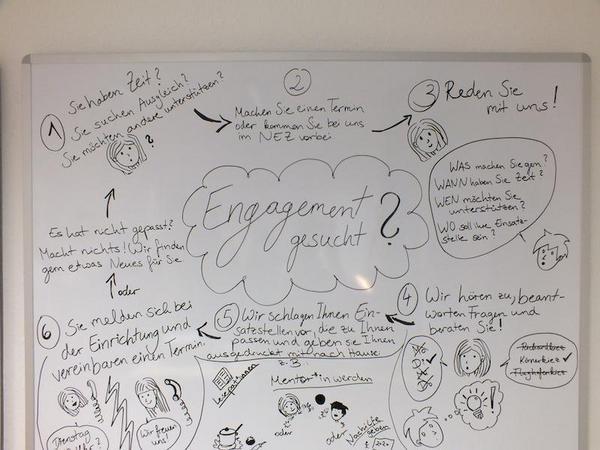 1
Sie haben Zeit?
Sie suchen Ausgleich?
Sie möchten andere unterstützen?
?
2
Machen Sie einen Termin
oder kommen Sie bei uns
im NEZ vorbei
3
Reden Sie
mit uns!
WAS machen Sie gern?
WANN haben Sie Zeit?
WEN möchten Sie
unterstützen?
WO soll ihre Einsatz-
stelle sein?
Engagement
gesucht?
4
Wir hören zu, beant-
worten Fragen und
beraten Sie!
Körnerkiez
Flughafenkiez
5
Wir schlagen Ihnen Ein-
satzstellen vor, die zu Ihnen
passen und geben sie Ihnen
ausgedruckt mit nach Hause
z.B
Lesepat*innen
Mentor*in werden
oder
oder
Nachhilfe
geben
6
Sie melden sich bei
der Einrichtung und
vereinbaren einen Termin.
Dienstag
Wir freuen
uns!
oder
Es hat nicht gepasst?
Macht nichts! Wir finden
gern etwas Neues für Sie